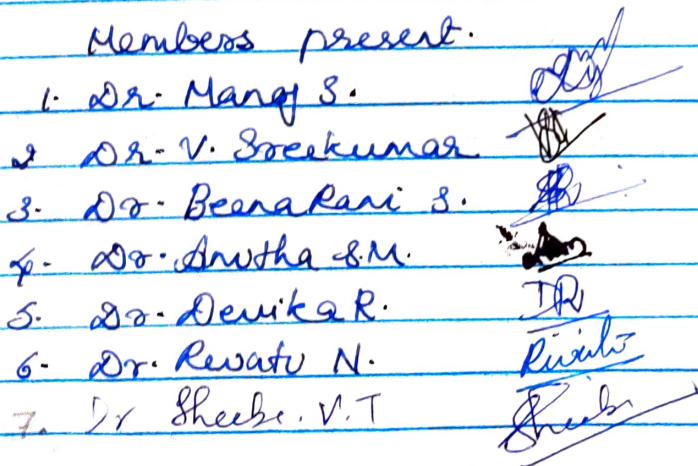 Members present.
1. Dr. Manoj S.
2 Dr. V. Sreekumar
3. Dr. Beena Rani S.
4. Dr. Anitha S.M.
5. Dr. Devika R. DR
6. Dr. Revatu N.
7. Dr Sheeba. V.T Sheeba